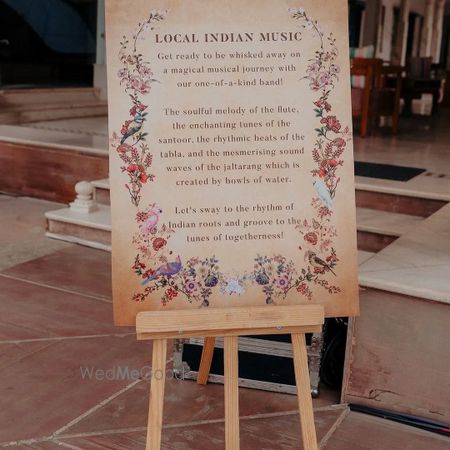 LOCAL INDIAN MUSIC
Get ready to be whisked away on
a magical musical journey with
our one-of-a-kind band!
The soulful melody of the flute,
the enchanting tunes of the
santoor, the rhythmic beats of the
tabla, and the mesmerising sound
waves of the jaltarang which is
created by bowls of water.
Let's sway to the rhythm of
Indian roots and groove to the
tunes of togetherness!
WedMeGood